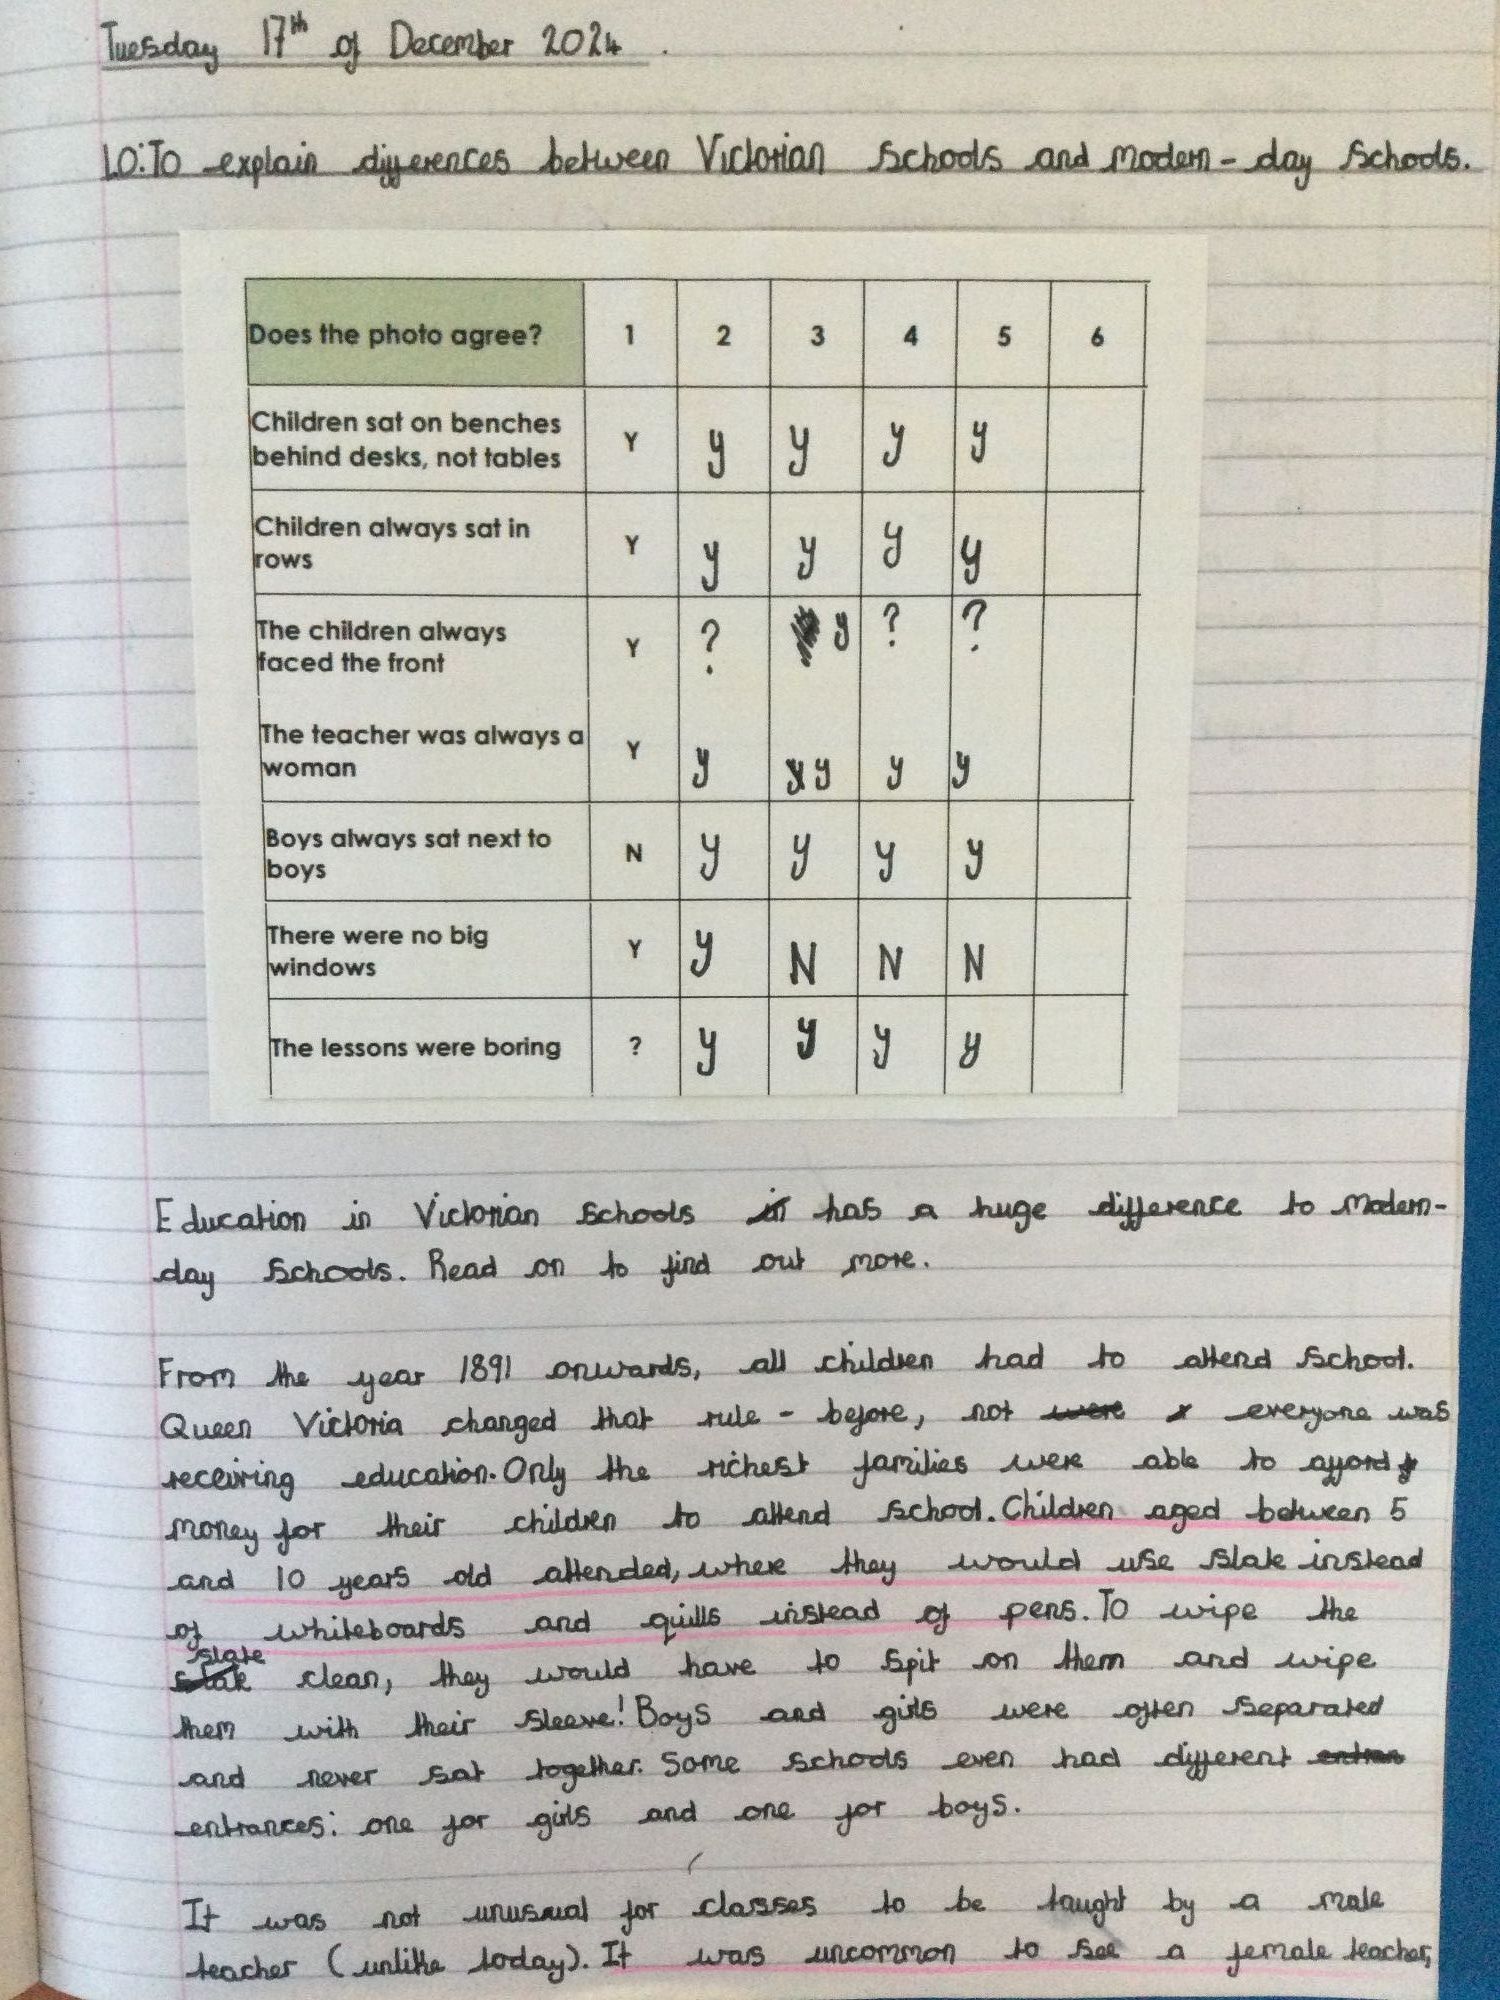 Tuesday 17th of December 2024.
LO: To explain differences between Victorian schools and modern-day schools.
Does the photo agree? 1 2 3 4 5 6
Children sat on benches
behind desks, not tables Y y y y y
Children always sat in
rows Y y y y y
The children always
faced the front Y ? y ? ?
The teacher was always a
woman Y y y y y
Boys always sat next to
boys N y y y y
There were no big
windows Y y N N N
The lessons were boring ? y y y y
Education in Victorian schools has a huge difference to modern-
day schools. Read on to find out more.
From the year 1891 onwards, all children had to attend school.
Queen Victoria changed that rule - before, not were everyone was
receiving education. Only the richest families were able to afford
money for their children to attend school. Children aged between 5
and 10 years old attended, where they would use slate instead
of whiteboards and quills instead of pens. To wipe the
slate clean, they would have to spit on them and wipe
them with their sleeve! Boys and girls were often separated
and never sat together. Some schools even had different
entrances: one for girls and one for boys.
It was not unusual for classes to be taught by a male
teacher (unlike today). It was uncommon to see a female teacher,